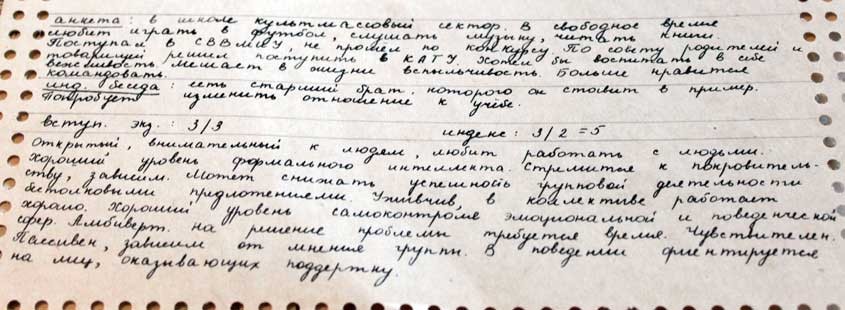 анкета: в школе культмассовый сектор. В свободное время
любит играть в футбол, слушать музыку, читать книги.
Поступал в СВВМИУ, не прошел по конкурсу. По совету родителей и
товарищей решил поступить в КАТУ. Хотел бы воспитать в себе
вежливость. Мешает в жизни вспыльчивость. Больше нравится
командовать.
инд. беседа: есть старший брат, которого он ставит в пример.
Попробует изменить отношение к учёбе.
вступ. экз.: 3/3 индекс: 3/2=5
Открытый, внимательный к людям, любит работать с людьми.
Хороший уровень формального интеллекта. Стремится к покровитель-
ству, зависим. Может снижать успешность групповой деятельности
бестолковыми предложениями. Уживчив, в коллективе работает
хорошо. Хороший уровень самоконтроля эмоциональной и поведенческой
сфер. Амбиверт. на решение проблемы требуется время. Чувствителен.
Пассивен, зависим от мнения группы. В поведении ориентируется
на лиц, оказывающих поддержку.